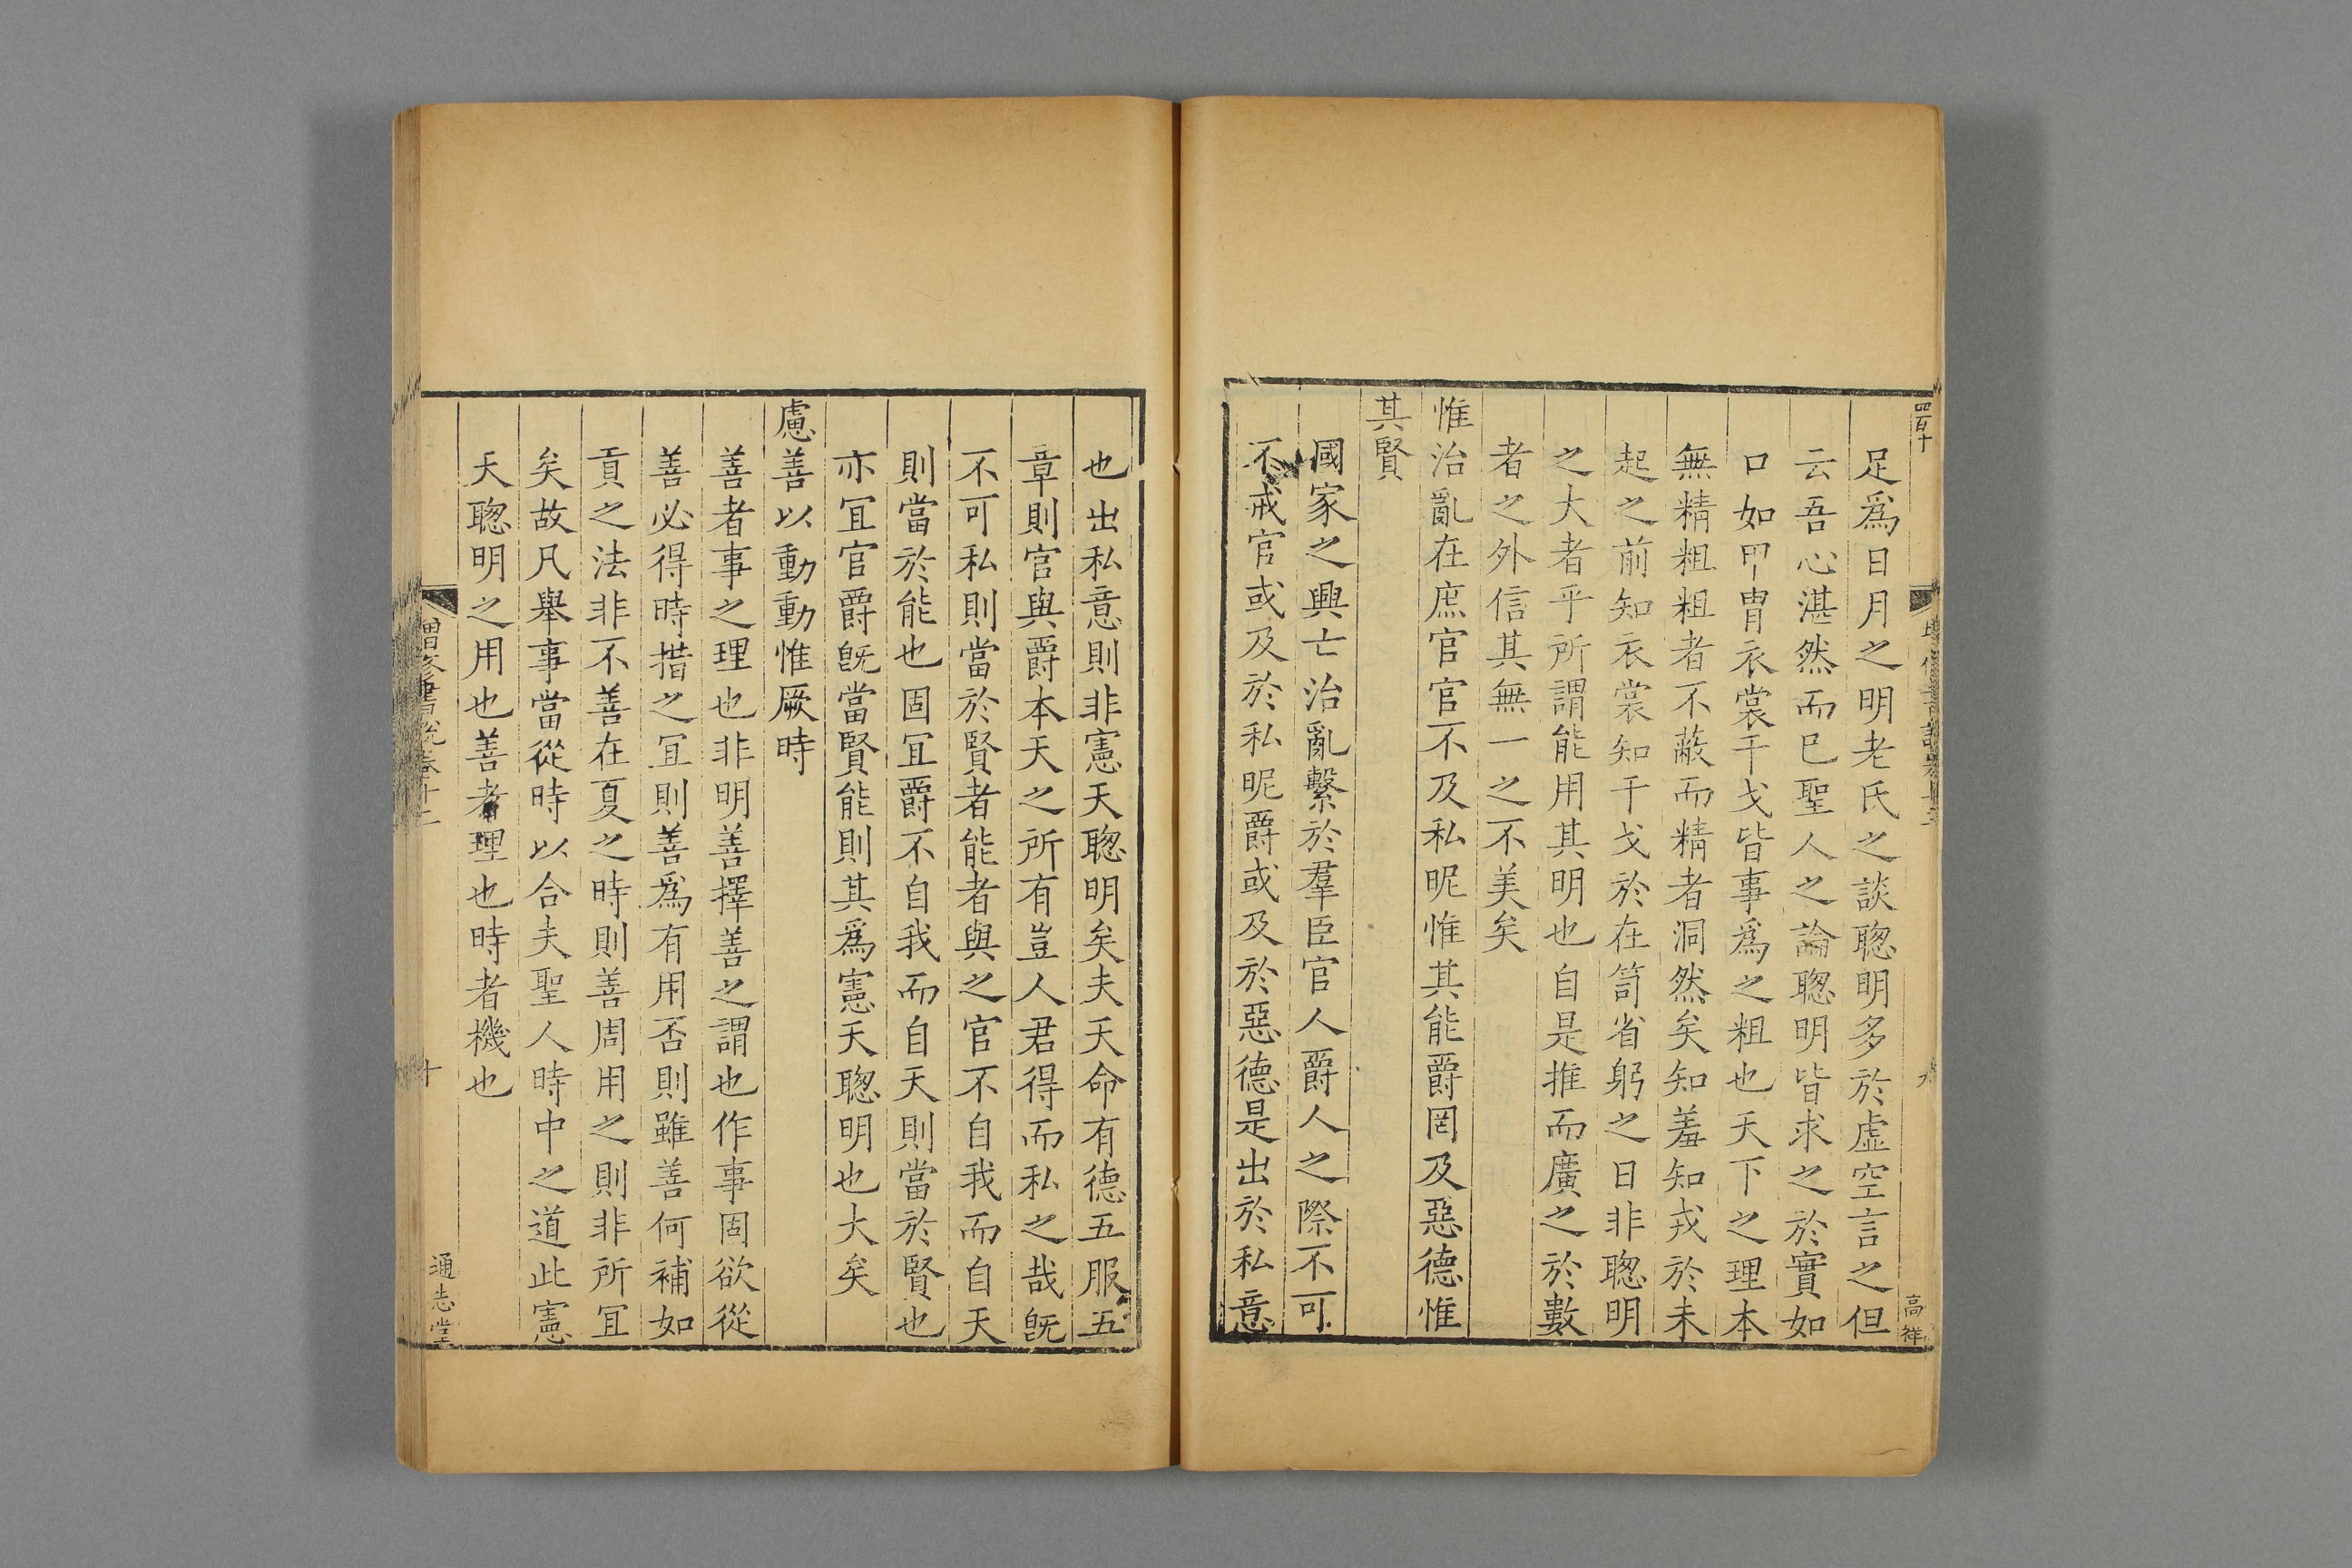 四百十
九
高祥
足爲日月之明老氏之談聰明多於虛空言之但
云吾心湛然而巳聖人之論聰明皆求之於實如
口如甲冑衣裳干戈皆事爲之粗也天下之理本
無精粗粗者不蔽而精者洞然矣知羞知戎於未
起之前知衣裳知干戈於在笥省躬之日非聰明
之大者乎所謂能用其明也自是推而廣之於數
者之外信其無一之不美矣
惟治亂在庶官官不及私昵惟其能爵罔及惡德惟
其賢
國家之興亡治亂繫於羣臣官人爵人之際不可
不戒官或及於私昵爵或及於惡德是出於私意
也出私意則非憲天聰明矣夫天命有德五服五
章則官與爵本天之所有豈人君得而私之哉旣
不可私則當於賢者能者與之官不自我而自天
則當於能也固宜爵不自我而自天則當於賢也
亦宜官爵旣當賢能則其爲憲天聰明也大矣
慮善以動動惟厥時
善者事之理也非明善擇善之謂也作事固欲從
善必得時措之宜則善爲有用否則雖善何補如
貢之法非不善在夏之時則善周用之則非所宜
矣故凡舉事當從時以合夫聖人時中之道此憲
天聰明之用也善者理也時者機也
增修書說卷十二
十
通志堂